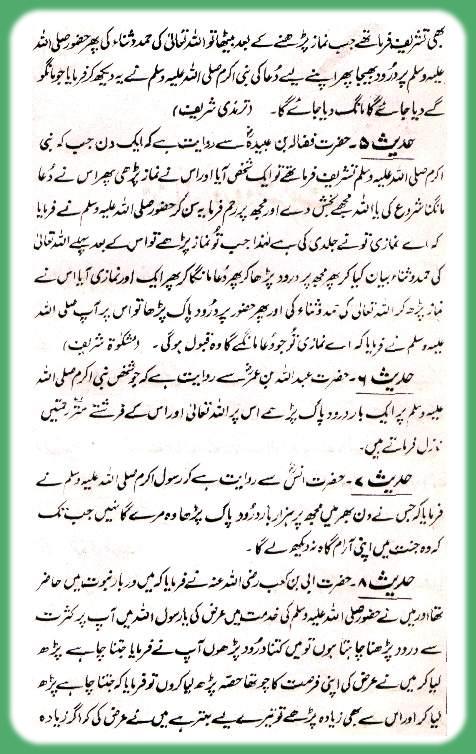 بھی تشریف فرما تھے جب نماز پڑھنے کے بعد بیٹھا تو اللہ تعالیٰ کی حمد و ثناء کی پھر حضور صلی اللہ
علیہ وسلم پر درود بھیجا پھر اپنے لیے دُعا کی نبی اکرم صلی اللہ علیہ وسلم نے یہ دیکھ کر فرمایا جو مانگو
گے دیا جائے گا مانگ دیا جائے گا۔ (ترمذی شریف)
حدیث ۵۔ حضرت فضالہ بن عبیدہؓ سے روایت ہے کہ ایک دن جب کہ نبی
اکرم صلی اللہ علیہ وسلم تشریف فرما تھے تو ایک شخص آیا اور اس نے نماز پڑھی پھر اس نے دُعا
مانگنا شروع کی یا اللہ مجھے بخش دے اور مجھ پر رحم فرما یہ سن کر حضور صلی اللہ علیہ وسلم نے فرمایا
کہ اے نمازی تو نے جلدی کی ہے لہٰذا جب تُو نماز پڑھے تو اس کے بعد پہلے اللہ تعالیٰ
کی حمد و ثناء بیان کیا کر پھر مجھ پر درود پڑھا کر پھر دُعا مانگا کر پھر ایک اور نمازی آیا اس نے
نماز پڑھ کر اللہ تعالیٰ کی حمد و ثناء کی اور پھر حضور پر درُود پاک پڑھا تو اس پر آپ صلی اللہ
علیہ وسلم نے فرمایا کہ اے نمازی تُو جو دُعا مانگے گا وہ قبول ہوگی۔ (مشکوٰۃ شریف)
حدیث ۶۔ حضرت عبداللہ بن عمرؓ سے روایت ہے کہ جو شخص نبی اکرم صلی اللہ
علیہ وسلم پر ایک بار درود پاک پڑھے اس پر اللہ تعالیٰ اور اس کے فرشتے ستر رحمتیں
نازل فرماتے ہیں۔
حدیث ۷۔ حضرت انسؓ سے روایت ہے کہ رسول اکرم صلی اللہ علیہ وسلم نے
فرمایا کہ جس نے دن بھر میں مجھ پر ہزار بار درُود پاک پڑھا وہ مرے گا نہیں جب تک
کہ وہ جنت میں اپنی آرام گاہ نہ دیکھ لے گا۔
حدیث ۸۔ حضرت ابی بن کعب رضی اللہ عنہ نے فرمایا کہ میں دربار نبوت میں حاضر
تھا اور میں نے حضور صلی اللہ علیہ وسلم کی خدمت میں عرض کی یا رسول اللہ میں آپ پر کثرت
سے درود پڑھنا چاہتا ہوں تو میں کتنا درُود پڑھوں آپ نے فرمایا جتنا چاہے پڑھ
لیا کر میں نے عرض کی اپنی فرصت کا چوتھا حصّہ پڑھ لیا کروں تو فرمایا کہ جتنا چاہے پڑھ
لیا کر اور اس سے بھی زیادہ پڑھے تو تیرے لیے بہتر ہے میں نے عرض کی کہ اگر زیادہ